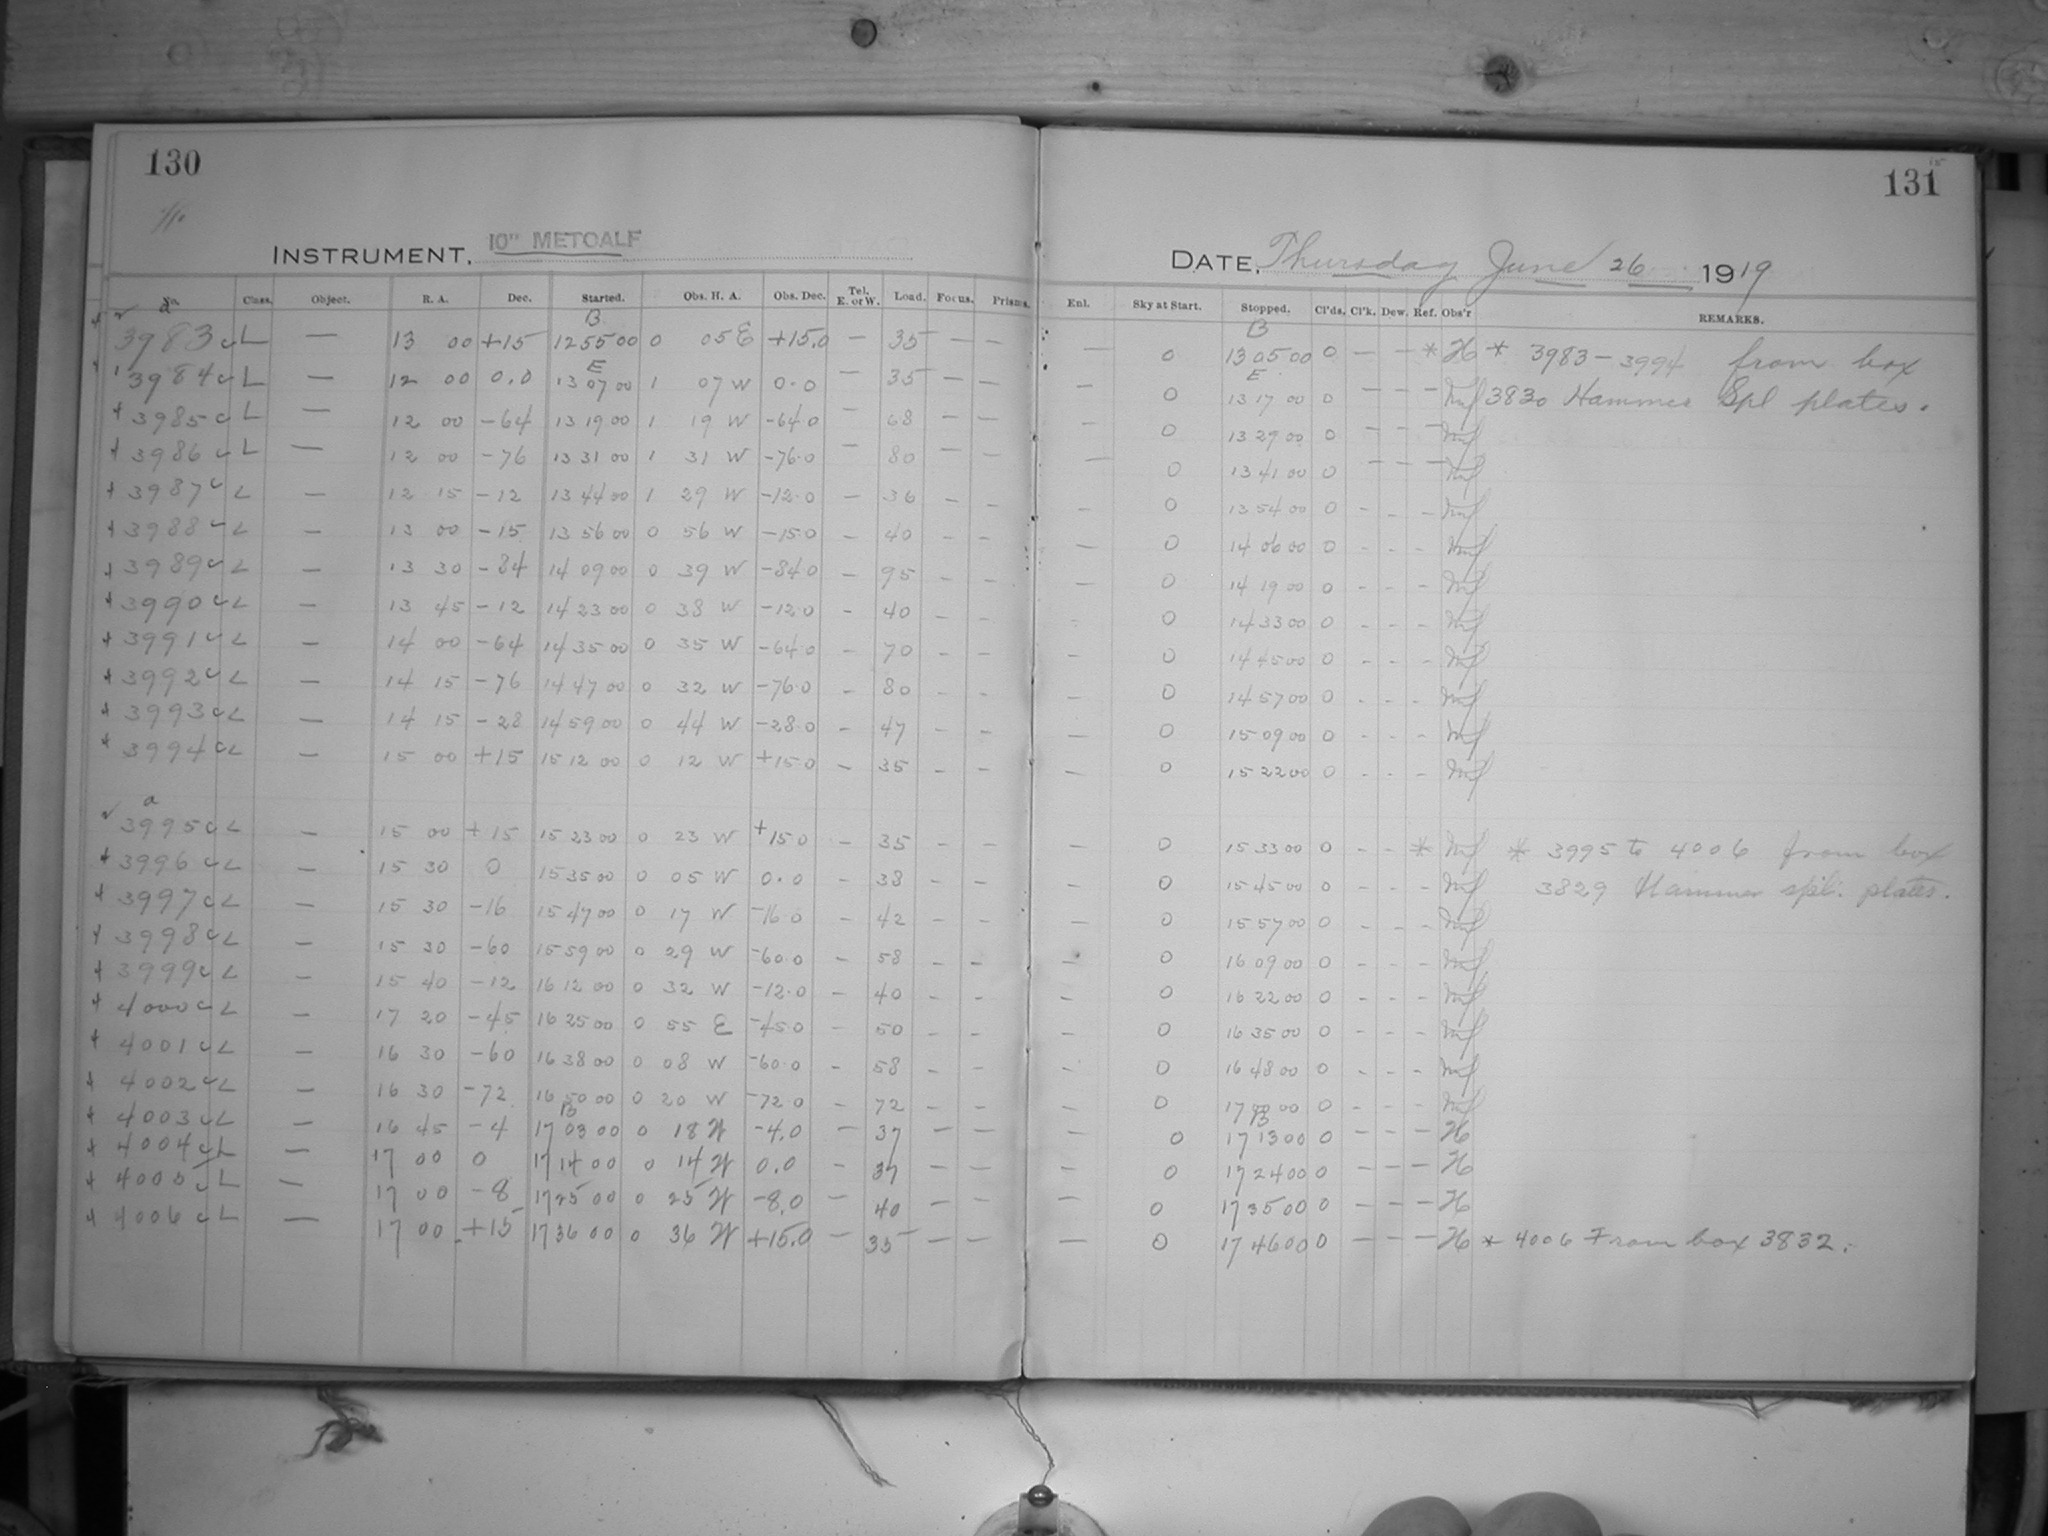 130
INSTRUMENT, 10" METCALF
No. Class. Object. R. A. Dec. Started. Obs. H. A. Obs. Dec. Tel. E. or W. Load. Focus. Prisms.
a B
3983 c L — 13 00 +15 12 55 00 0 05 E +15.0 — 35 — —
E
3984 c L — 12 00 0.0 13 07 00 1 07 W 0.0 — 35 — —
3985 c L — 12 00 -64 13 19 00 1 19 W -64.0 — 68 — —
3986 c L — 12 00 -76 13 31 00 1 31 W -76.0 — 80 — —
3987 c L — 12 15 -12 13 44 00 1 29 W -12.0 — 36 — —
3988 c L — 13 00 -15 13 56 00 0 56 W -15.0 — 40 — —
3989 c L — 13 30 -84 14 09 00 0 39 W -84.0 — 95 — —
3990 c L — 13 45 -12 14 23 00 0 38 W -12.0 — 40 — —
3991 c L — 14 00 -64 14 35 00 0 35 W -64.0 — 70 — —
3992 c L — 14 15 -76 14 47 00 0 32 W -76.0 — 80 — —
3993 c L — 14 15 -28 14 59 00 0 44 W -28.0 — 47 — —
3994 c L — 15 00 +15 15 12 00 0 12 W +15.0 — 35 — —
a
3995 c L — 15 00 +15 15 23 00 0 23 W +15.0 — 35
3996 c L — 15 30 0 15 35 00 0 05 W 0.0 — 38 — —
3997 c L — 15 30 -16 15 47 00 0 17 W -16.0 — 42 — —
3998 c L — 15 30 -60 15 59 00 0 29 W -60.0 — 58 — —
3999 c L — 15 40 -12 16 12 00 0 32 W -12.0 — 40 — —
4000 c L — 17 20 -45 16 25 00 0 55 E -45.0 — 50 — —
4001 c L — 16 30 -60 16 38 00 0 08 W -60.0 — 58 — —
4002 c L — 16 30 -72 16 50 00 0 20 W -72.0 — 72 — —
B
4003 c L — 16 45 -4 17 03 00 0 18 W -4.0 — 37 — —
4004 c L — 17 00 0 17 14 00 0 14 W 0.0 — 37 — —
4005 c L — 17 00 -8 17 25 00 0 25 W -8.0 — 40 — —
4006 c L — 17 00 +15 17 36 00 0 36 W +15.0 — 35 — —
131
DATE, Thursday June 26 1919
Enl. Sky at Start. Stopped. Cl'ds. Cl'k. Dew. Ref. Obs'r REMARKS.
B
— 0 13 05 00 0 — — * H * 3983 - 3994 from box
E
— 0 13 17 00 0 — — — 3830 Hammer Spl plates.
— 0 13 29 00 0 — — —
— 0 13 41 00 0 — — —
— 0 13 54 00 0 — — —
— 0 14 06 00 0 — — —
— 0 14 19 00 0 — — —
— 0 14 33 00 0 — — —
— 0 14 45 00 0 — — —
— 0 14 57 00 0 — — —
— 0 15 09 00 0 — — —
— 0 15 22 00 0 — — —
— 0 15 33 00 0 — — * * 3995 to 4006 from box
— 0 15 45 00 0 — — — 3829 Hammer spl. plates.
— 0 15 57 00 0 — — —
— 0 16 09 00 0 — — —
— 0 16 22 00 0 — — —
— 0 16 35 00 0 — — —
— 0 16 48 00 0 — — —
— 0 17 00 00 0 — — —
B
— 0 17 13 00 0 — — — H
— 0 17 24 00 0 — — — H
— 0 17 35 00 0 — — — H
— 0 17 46 00 0 — — — H * 4006 From box 3832.